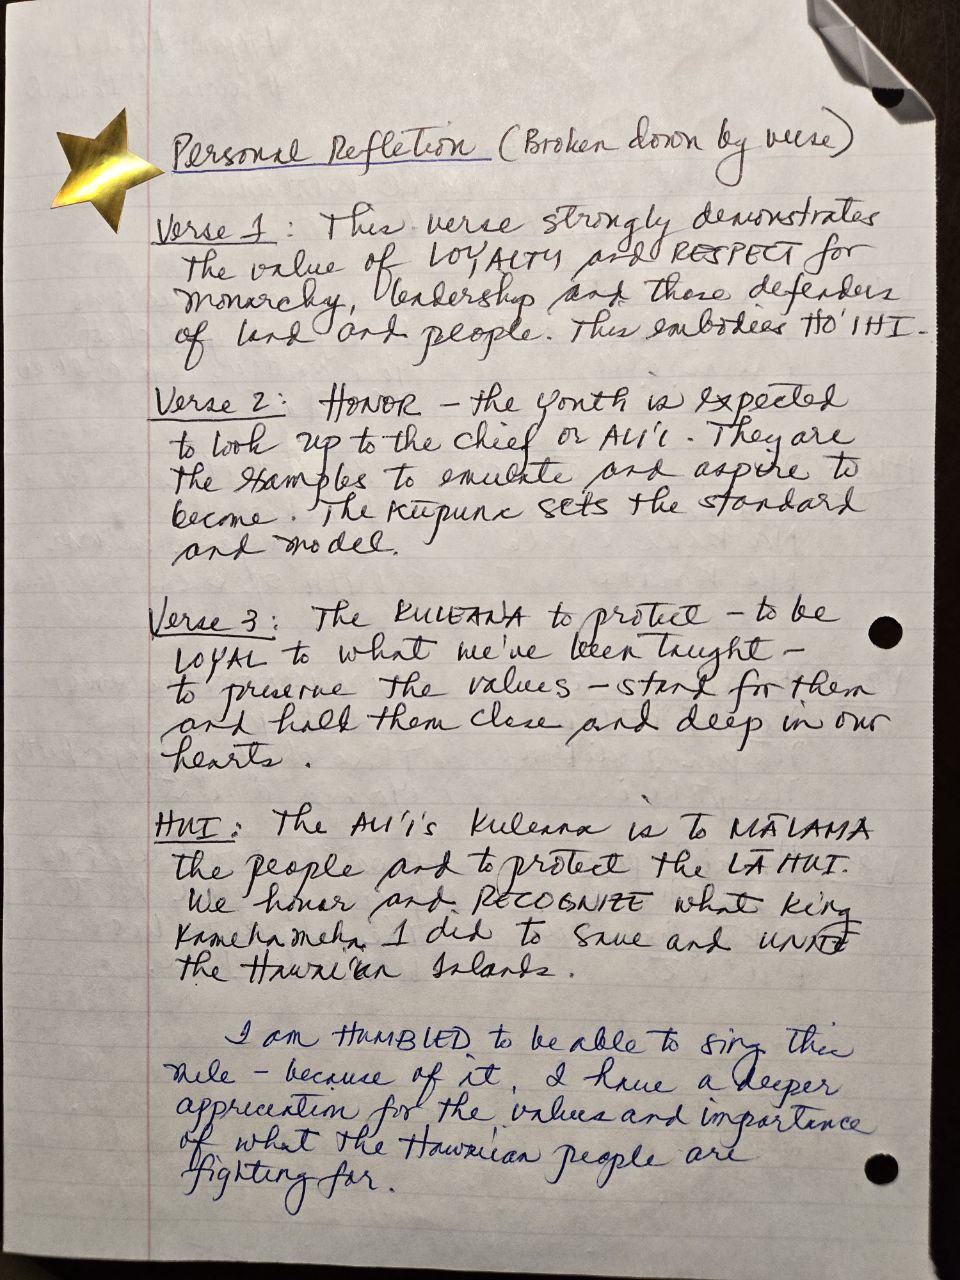 Personal Refletion (Broken down by verse)
Verse 1: This verse strongly demonstrates
the value of LOYALTY and RESPECT for
monarchy, leadership and those defenders
of land and people. This embodies HO'IHI.
Verse 2: HONOR – the youth is expected
to look up to the chief or ALI'I. They are
the examples to emulate and aspire to
become. The Kūpuna sets the standard
and model.
Verse 3: The KULEANA to protect – to be
LOYAL to what we've been taught –
to preserve the values – stand for them
and hold them close and deep in our
hearts.
HUI: The ALI'I's Kuleana is to MĀLAMA
the people and to protect the LĀHUI.
We honor and RECOGNIZE what King
Kamehameha I did to save and UNITE
the Hawai'ian Islands.
I am HUMBLED to be able to sing this
mele – because of it, I have a deeper
appreciation for the values and importance
of what the Hawaiian people are
fighting for.